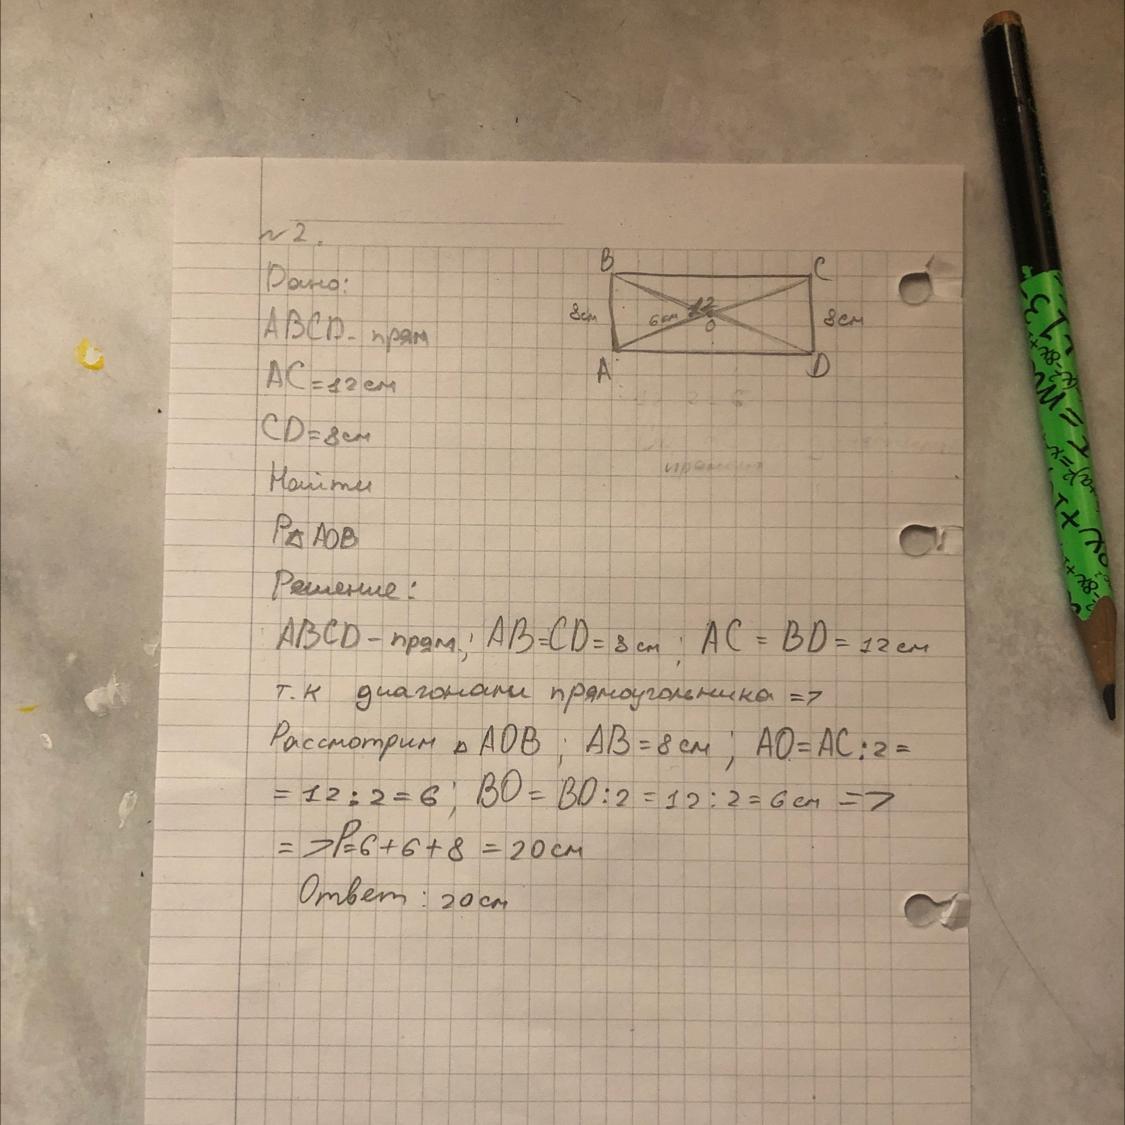 №2.
Дано:
B
C
8см
6см
12
O
8см
A
D
ABCD - прям
AC=12см
CD=8см
Найти
P△AOB
Решение:
ABCD - прям; AB=CD=8см; AC=BD=12см
т.к диагонали прямоугольника =>
Рассмотрим △AOB; AB=8см; AO=AC:2=
=12:2=6; BO=BD:2=12:2=6см =>
=>P=6+6+8=20см
Ответ: 20см